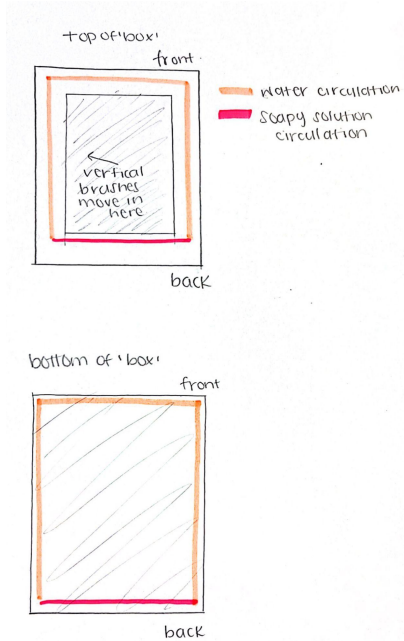 top of 'box'
front.
water circulation
soapy solution
circulation
vertical
brushes
move in
here
back
bottom of 'box'
front
back